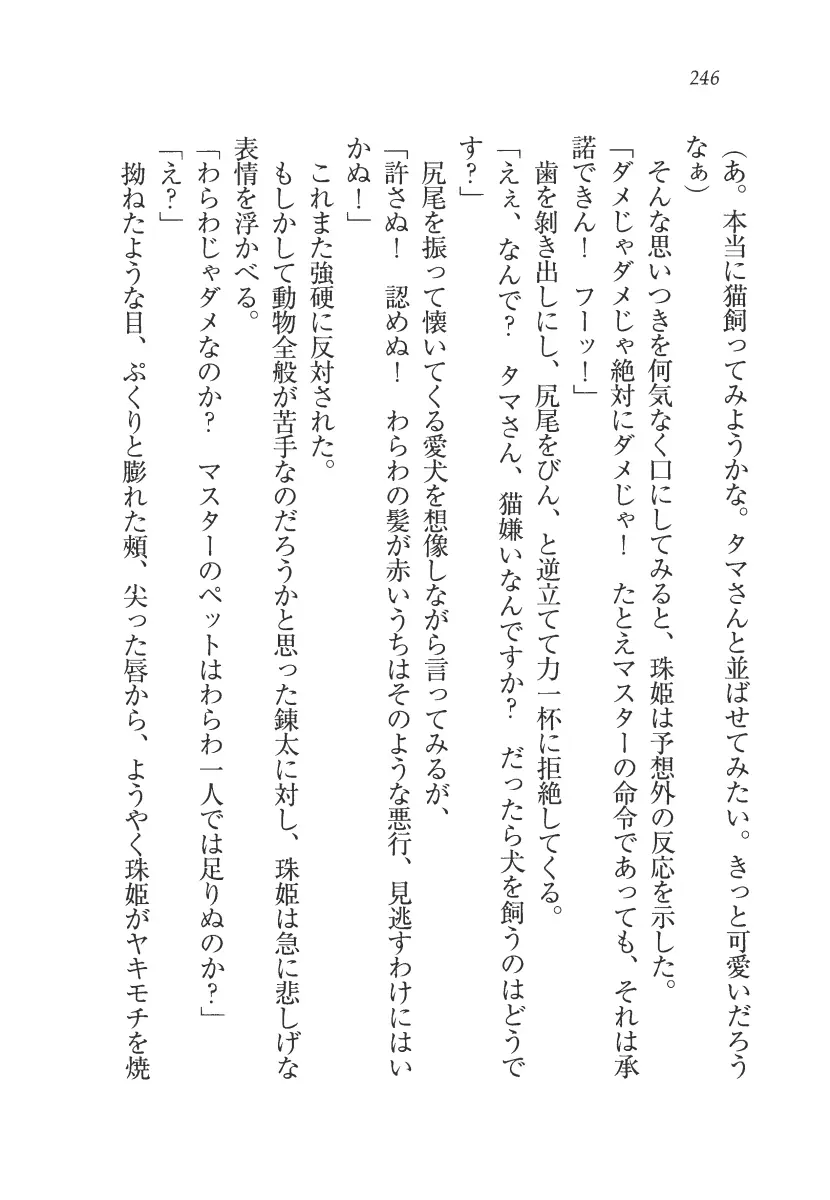 246
（あ。本当に猫飼ってみようかな。タマさんと並ばせてみたい。きっと可愛いだろう
なぁ）
　そんな思いつきを何気なく口にしてみると、珠姫は予想外の反応を示した。
「ダメじゃダメじゃ絶対にダメじゃ！　たとえマスターの命令であっても、それは承
諾できん！　フーッ！」
　歯を剝き出しにし、尻尾をびん、と逆立てて力一杯に拒絶してくる。
「えぇ、なんで？　タマさん、猫嫌いなんですか？　だったら犬を飼うのはどうで
す？」
　尻尾を振って懐いてくる愛犬を想像しながら言ってみるが、
「許さぬ！　認めぬ！　わらわの髪が赤いうちはそのような悪行、見逃すわけにはい
かぬ！」
　これまた強硬に反対された。
　もしかして動物全般が苦手なのだろうかと思った錬太に対し、珠姫は急に悲しげな
表情を浮かべる。
「わらわじゃダメなのか？　マスターのペットはわらわ一人では足りぬのか？」
「え？」
　拗ねたような目、ぷくりと膨れた頰、尖った唇から、ようやく珠姫がヤキモチを焼